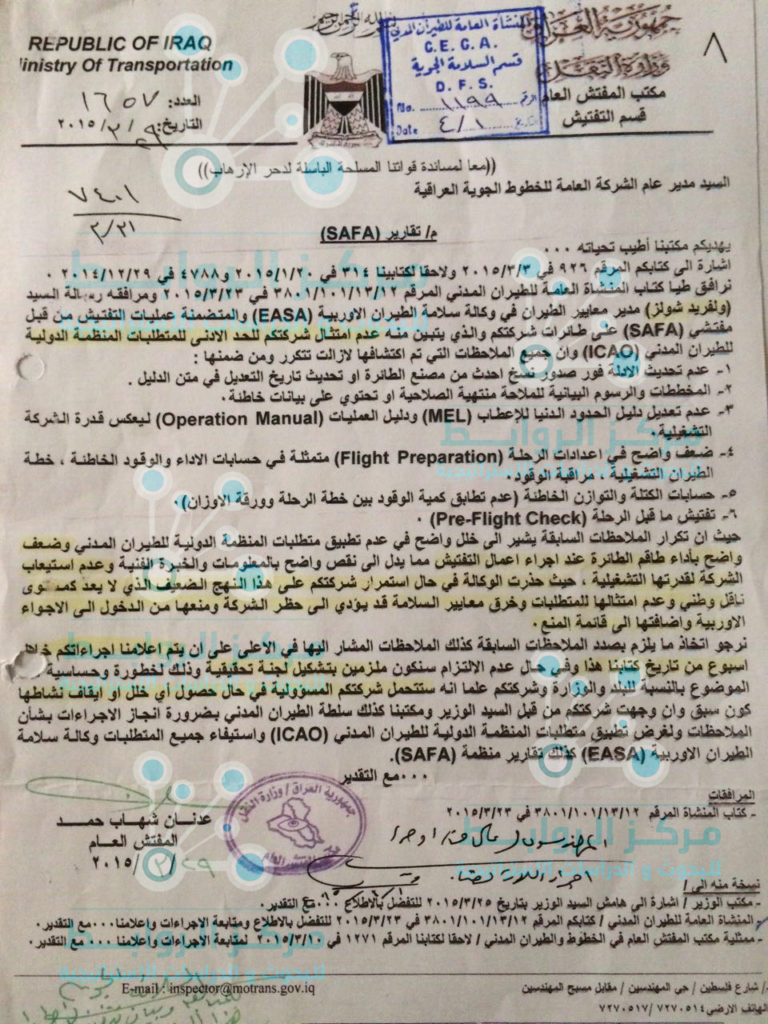 بسم الله الرحمن الرحيم
REPUBLIC OF IRAQ
Ministry Of Transportation
جمهورية العراق
وزارة النقل
مكتب المفتش العام
قسم التفتيش
٨
المنشاة العامة للطيران المدني
G.E.G.A.
قسم السلامة الجوية
D.F.S.
No. ١١٩٩ الرقم
Date ٤/١
العدد: ١٦٥٧
التاريخ: ٢٠١٥/٣/٢٩
((معا لمساندة قواتنا المسلحة الباسلة لدحر الإرهاب))
السيد مدير عام الشركة العامة للخطوط الجوية العراقية
٧٤٠١
٣/٣١
م/ تقارير (SAFA)
يهديكم مكتبنا أطيب تحياته ...
اشارة الى كتابكم المرقم ٩٢٦ في ٢٠١٥/٣/٣ ولاحقا لكتابينا ٣١٤ في ٢٠١٥/١/٢٠ و٤٧٨٨ في ٢٠١٤/١٢/٢٩ .
نرافق طيا كتاب المنشاة العامة للطيران المدني المرقم ٣٨٠١/١٠١/١٣/١٢ في ٢٠١٥/٣/٢٣ ومرافقه رسالة السيد
(ولفريد شولز) مدير معايير الطيران في وكالة سلامة الطيران الاوربية (EASA) والمتضمنة عمليات التفتيش من قبل
مفتشي (SAFA) على طائرات شركتكم والذي يتبين منه عدم امتثال شركتكم للحد الادنى للمتطلبات المنظمة الدولية
للطيران المدني (ICAO) وان جميع الملاحظات التي تم اكتشافها لازالت تتكرر ومن ضمنها :
١- عدم تحديث الادلة فور صدور نسخ احدث من مصنع الطائرة او تحديث تاريخ التعديل في متن الدليل .
٢- المخططات والرسوم البيانية للملاحة منتهية الصلاحية او تحتوي على بيانات خاطئة .
٣- عدم تعديل دليل الحدود الدنيا للإعطاب (MEL) ودليل العمليات (Operation Manual) ليعكس قدرة الشركة
التشغيلية.
٤- ضعف واضح في اعدادات الرحلة (Flight Preparation) متمثلة في حسابات الاداء والوقود الخاطئة ، خطة
الطيران التشغيلية ، مراقبة الوقود.
٥- حسابات الكتلة والتوازن الخاطئة (عدم تطابق كمية الوقود بين خطة الرحلة وورقة الاوزان).
٦- تفتيش ما قبل الرحلة (Pre-Flight Check) .
حيث ان تكرار الملاحظات السابقة يشير الى خلل واضح في عدم تطبيق متطلبات المنظمة الدولية للطيران المدني وضعف
واضح بأداء طاقم الطائرة عند اجراء اعمال التفتيش مما يدل الى نقص واضح بالمعلومات والخبرة الفنية وعدم استيعاب
الشركة لقدرتها التشغيلية ، حيث حذرت الوكالة في حال استمرار شركتكم على هذا النهج الضعيف الذي لا يعد كمستوى
ناقل وطني وعدم امتثالها للمتطلبات وخرق معايير السلامة قد يؤدي الى حظر الشركة ومنعها من الدخول الى الاجواء
الاوربية واضافتها الى قائمة المنع.
نرجو اتخاذ ما يلزم بصدد الملاحظات السابقة كذلك الملاحظات المشار اليها في الاعلى على ان يتم اعلامنا اجراءاتكم خلال
اسبوع من تاريخ كتابنا هذا وفي حال عدم الالتزام سنكون ملزمين بتشكيل لجنة تحقيقية وذلك لخطورة وحساسية
الموضوع بالنسبة للبلد والوزارة وشركتكم علما انه ستتحمل شركتكم المسؤولية في حال حصول أي خلل او ايقاف نشاطها
كون سبق وان وجهت شركتكم من قبل السيد الوزير ومكتبنا كذلك سلطة الطيران المدني بضرورة انجاز الاجراءات بشأن
الملاحظات ولغرض تطبيق متطلبات المنظمة الدولية للطيران المدني (ICAO) واستيفاء جميع المتطلبات وكالة سلامة
الطيران الاوربية (EASA) كذلك تقارير منظمة (SAFA).
...مع التقدير
عدنان شهاب حمد
المفتش العام
٢٠١٥/٣/٢٩
جمهورية العراق / وزارة النقل
المرافقات
- كتاب المنشاة المرقم ٣٨٠١/١٠١/١٣/١٢ في ٢٠١٥/٣/٢٣
نسخة منه الى /
- مكتب الوزير / اشارة الى هامش السيد الوزير بتاريخ ٢٠١٥/٣/٢٥ للتفضل بالاطلاع ...مع التقدير.
- المنشاة العامة للطيران المدني / كتابكم المرقم ٣٨٠١/١٠١/١٣/١٢ في ٢٠١٥/٣/٢٣ للتفضل بالاطلاع ومتابعة الاجراءات واعلامنا...مع التقدير.
- ممثلية مكتب المفتش العام في الخطوط والطيران المدني / لاحقا لكتابنا المرقم ١٢٧١ في ٢٠١٥/٣/١٠ لمتابعة الاجراءات واعلامنا ...مع التقدير.
E-mail : inspector@motrans.gov.iq
/ شارع فلسطين / حي المهندسين / مقابل مسبح المهندسين
الهاتف الارضي ٧٢٧٠٥١٤ / ٧٢٧٠٥١٧
مركز الروابط
للبحوث و الدراسات الاستراتيجية